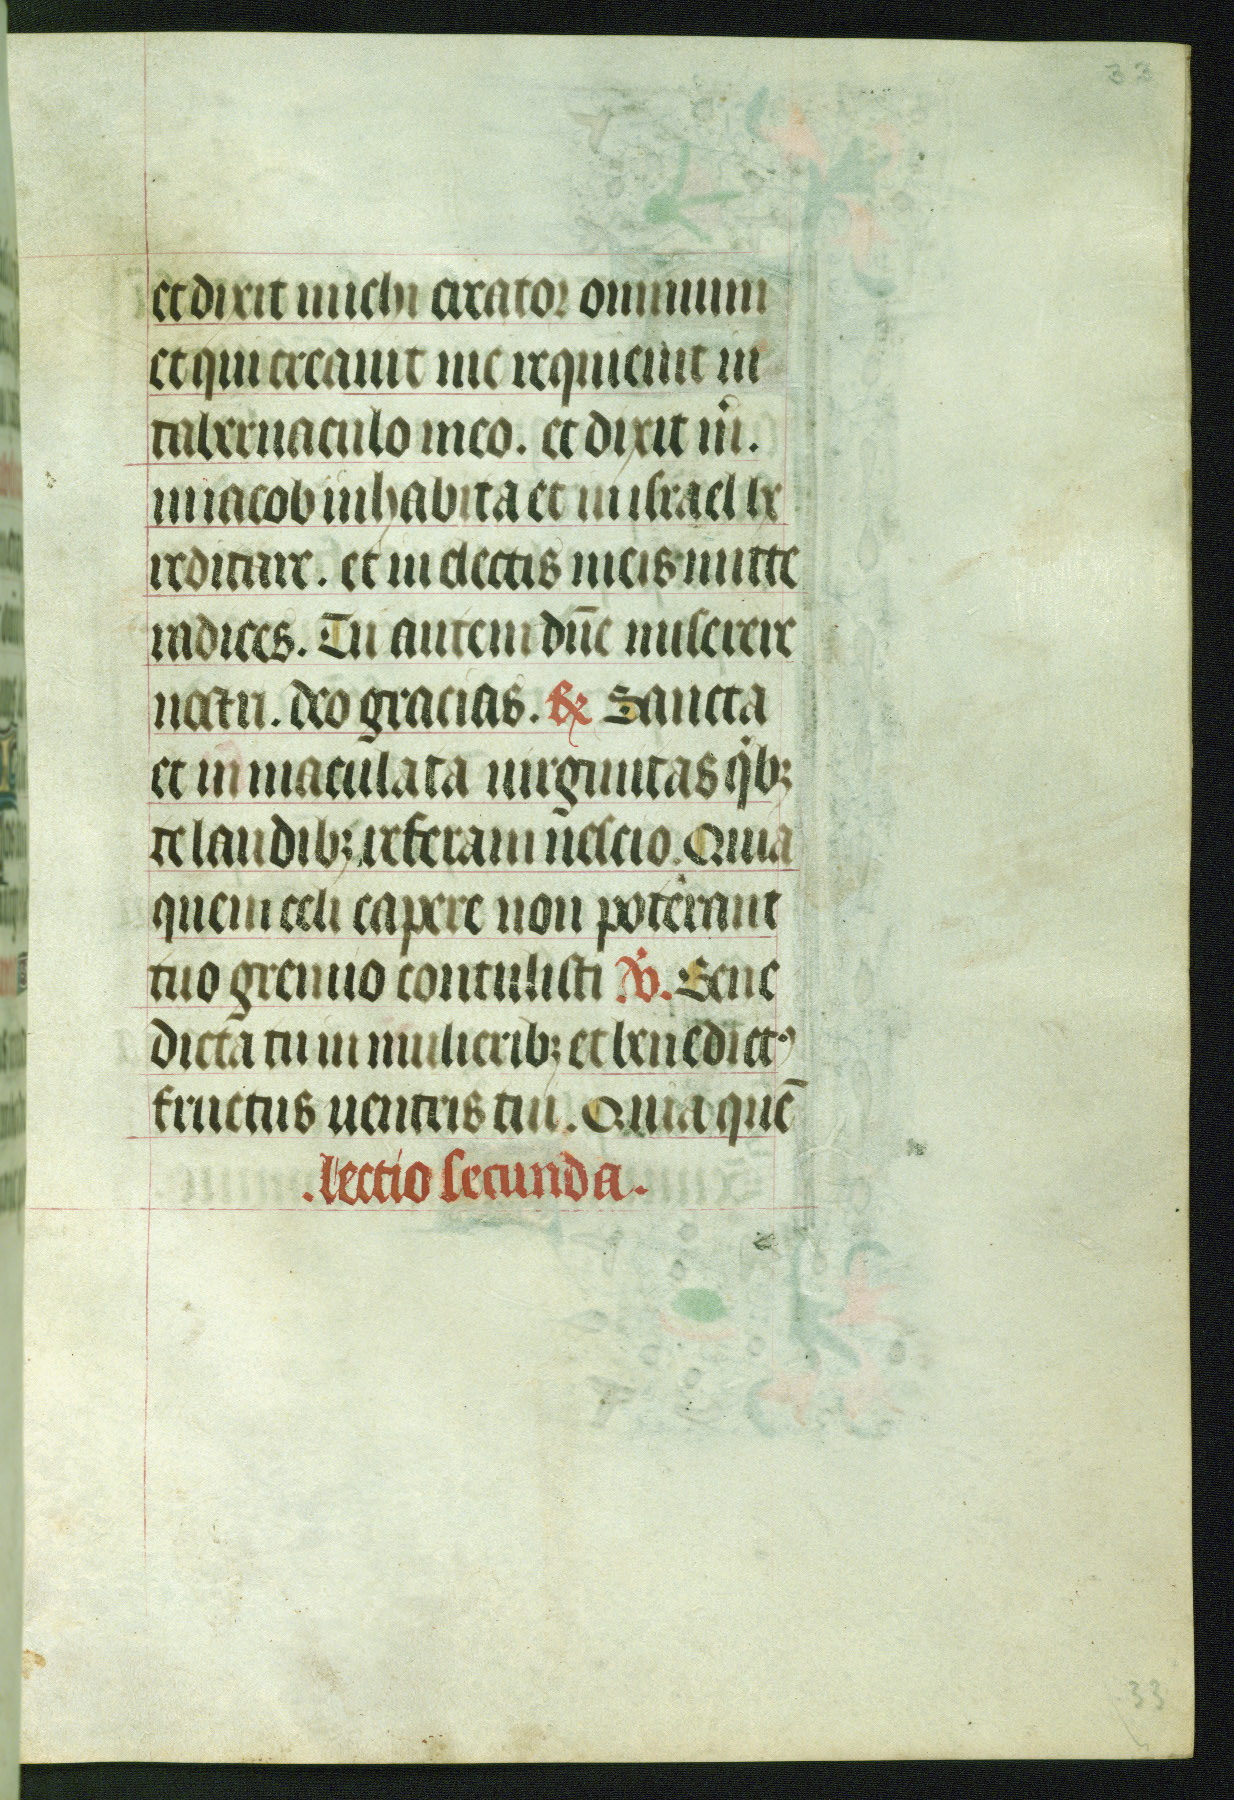 33
et dixit michi creator omnium
et qui creauit me requieuit in
tabernaculo meo. et dixit m̃.
in iacob inhabita et in israel he
reditare. et in electis meis mitte
radices. Tu autem dñe miserere
nostri. deo gracias. ℟ Sancta
et inmaculata uirginitas qͥbꝫ
te laudibꝫ referam nescio. Quia
quem celi capere non poterant
tuo gremio contulisti ℣. Bene
dicta tu in mulieribꝫ et benedictꝰ
fructus uentris tui. Quia quē
.lectio secunda.
33